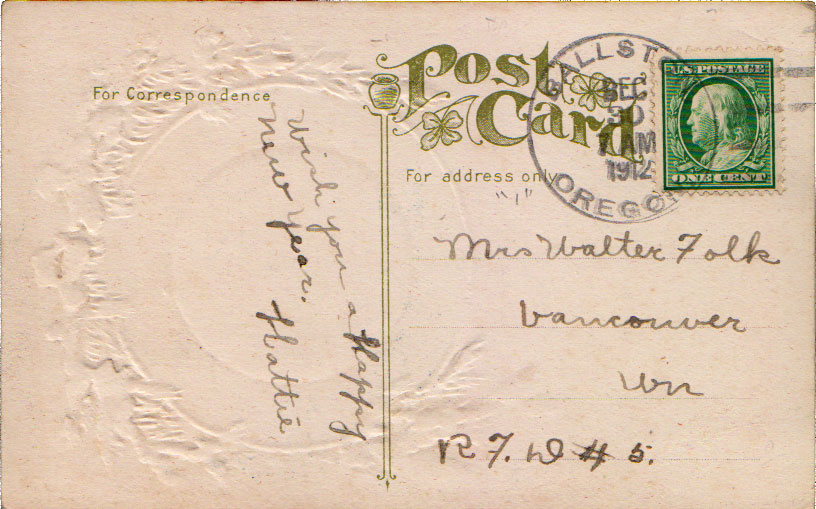 For Correspondence
Wish you a Happy
New Year.
Hattie
Post
Card
For address only
"1"
DEC
30
AM
1912
OREGON
U.S. POSTAGE
ONE CENT
Mrs Walter Folk
Vancouver
Wn
R F. D # 5.